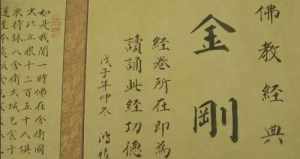 佛教經典
金剛
經卷所在即為
讀誦此經功德
戊子年仲冬
如是我聞一時佛在舍衛國
大比丘眾千二百五十人俱
衣持鉢入舍衛大城乞食于